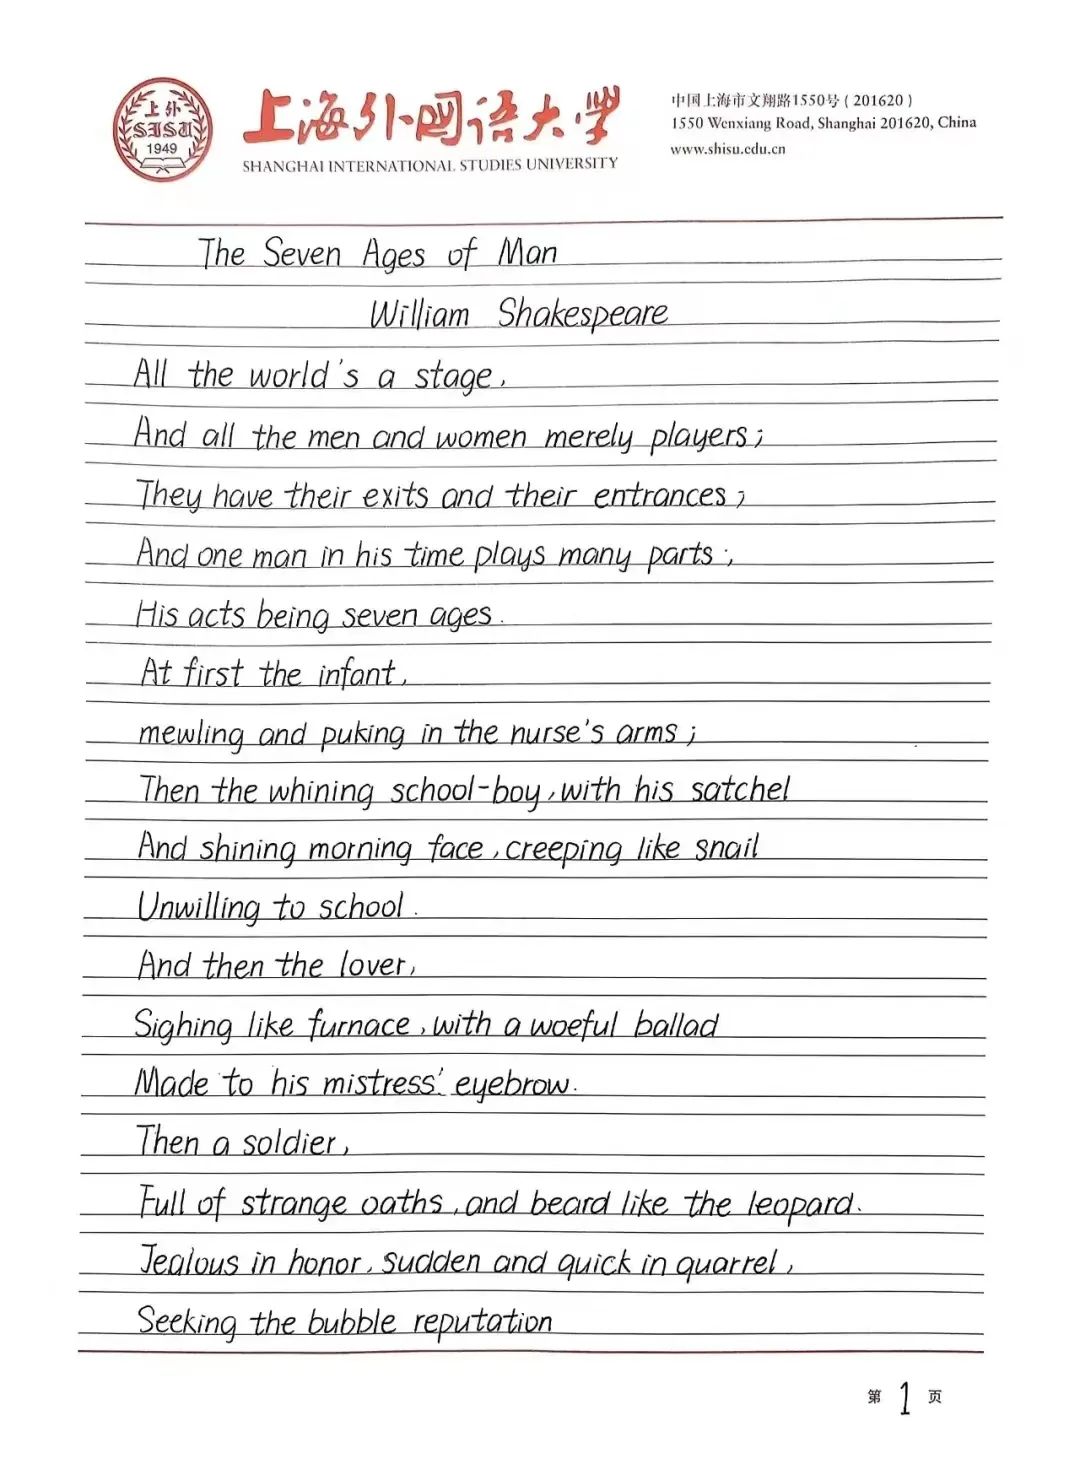 上外
SISU
1949
上海外国语大学
SHANGHAI INTERNATIONAL STUDIES UNIVERSITY
中国上海市文翔路1550号(201620)
1550 Wenxiang Road, Shanghai 201620, China
www.shisu.edu.cn
The Seven Ages of Man
William Shakespeare
All the world's a stage,
And all the men and women merely players;
They have their exits and their entrances;
And one man in his time plays many parts;,
His acts being seven ages.
At first the infant,
mewling and puking in the nurse's arms;
Then the whining school-boy, with his satchel
And shining morning face, creeping like snail
Unwilling to school.
And then the lover,
Sighing like furnace, with a woeful ballad
Made to his mistress' eyebrow.
Then a soldier,
Full of strange oaths, and beard like the leopard.
Jealous in honor, sudden and quick in quarrel,
Seeking the bubble reputation
第 1 页